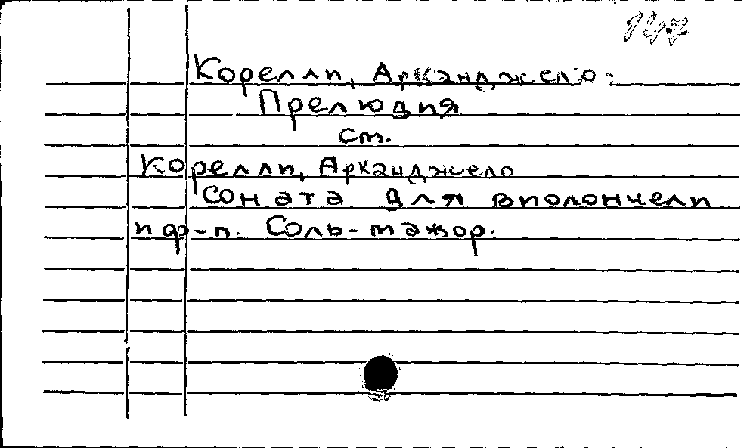 147
Корелли, Арканджело.
Прелюдия
см.
Корелли, Арканджело
Соната для виолончели
и ф-п. Соль-мажор.